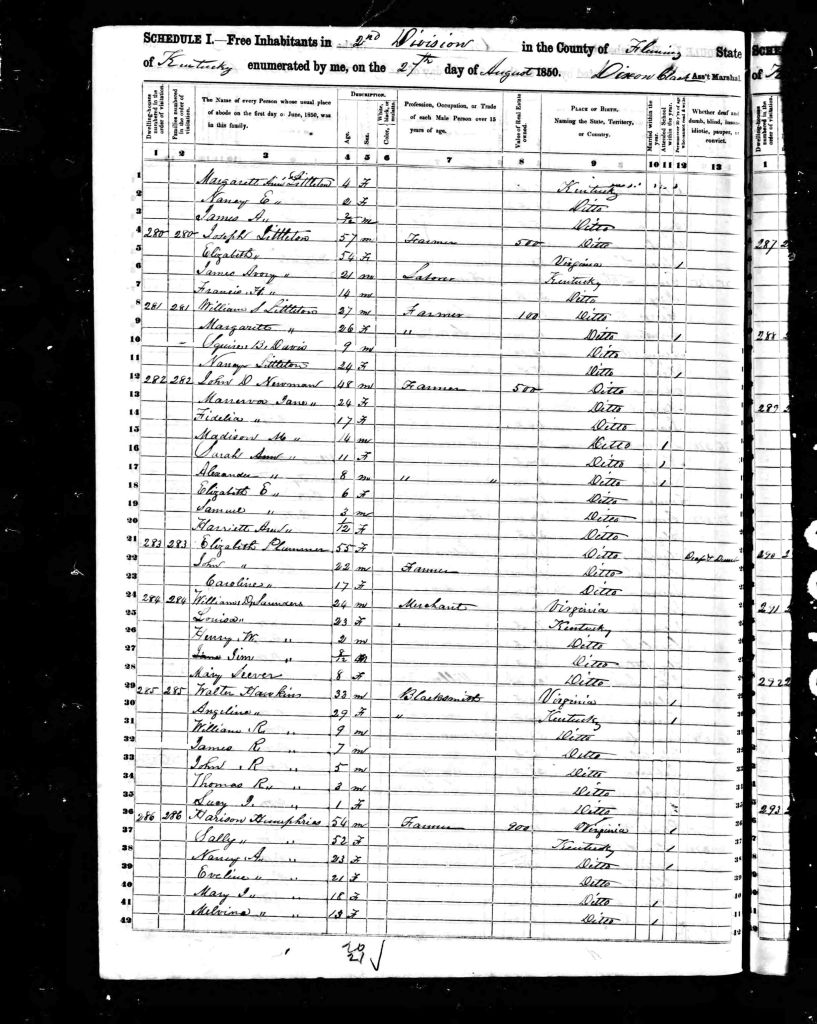 SCHEDULE I.—Free Inhabitants in 2nd Division in the County of Fleming State
of Kentucky enumerated by me, on the 27th day of August 1850. Dixon Clark Ass't Marshal
Dwelling-houses numbered in the order of visitation.
Families numbered in the order of visitation.
The Name of every Person whose usual place of abode on the first day of June, 1850, was in this family.
DESCRIPTION.
Age.
Sex.
Color, White, black, or mulatto.
Profession, Occupation, or Trade of each Male Person over 15 years of age.
Value of Real Estate owned.
PLACE OF BIRTH, Naming the State, Territory, or Country.
Married within the year.
Attended School within the year.
Whether deaf and dumb, blind, insane, idiotic, pauper, or convict.
1 2 3 4 5 6 7 8 9 10 11 12 13
1 Margarett Ann Littleton 4 F Kentucky
2 Nancy E " 2 F Ditto
3 James A " /12 m Ditto
4 280 280 Joseph Littleton 57 m Farmer 500 Ditto
5 Elizabeth " 54 F Virginia 1
6 James Avory " 21 m Laborer Kentucky
7 Francis H " 14 m Ditto
8 281 281 William S Littleton 27 m Farmer 100 Ditto
9 Margarett " 26 F " Ditto 1
10 Squire B. Davis 9 m Ditto
11 Nancy Littleton 24 F Ditto 1
12 282 282 John D Newman 48 m Farmer 500 Ditto
13 Manerva Jane " 24 F Ditto
14 Fidelia " 17 F Ditto
15 Madison M " 14 m Ditto 1
16 Sarah Ann " 11 F Ditto 1
17 Alexander " 8 m " " Ditto 1
18 Elizabeth E " 6 F Ditto
19 Samuel " 3 m Ditto
20 Harriett Ann " /12 F Ditto
21 283 283 Elizabeth Plummer 55 F Ditto
22 John " 22 m Farmer Ditto
23 Caroline " 17 F Ditto
24 284 284 William D Saunders 24 m Merchant Virginia
25 Louisa " 23 F Kentucky
26 Henry W. " 2 m Ditto
27 Jim " 8/12 m Ditto
28 Mary Seever 8 F Ditto
29 285 285 Walter Hawkins 33 m Blacksmith Virginia 1
30 Angeline " 29 F " Kentucky 1
31 William R " 9 m Ditto
32 James R " 7 m Ditto
33 John R " 5 m Ditto
34 Thomas R " 3 m Ditto
35 Lucy J. " 1 F Ditto
36 286 286 Harison Humphries 54 m Farmer 900 Virginia 1
37 Sally " 52 F Kentucky 1
38 Nancy A. " 23 F Ditto 1
39 Eveline " 21 F Ditto
40 Mary J " 18 F Ditto 1
41 Melvina " " 13 F Ditto 1
42
20
21